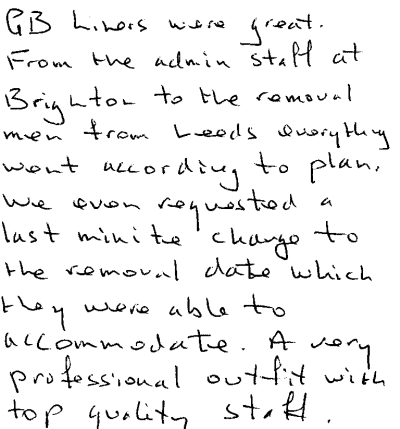 GB Liners were great.
From the admin staff at
Brighton to the removal
men from Leeds everything
went according to plan.
We even requested a
last minite change to
the removal date which
they were able to
accommodate. A very
professional outfit with
top quality staff.